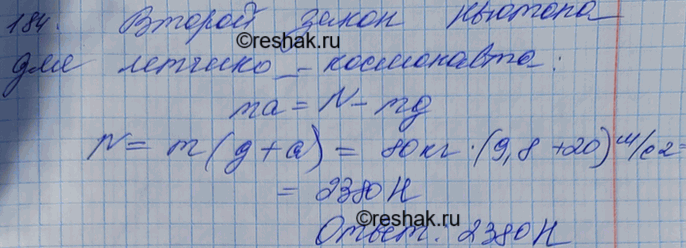 184. Второй закон Ньютона
©reshak.ru
для летчико-космонавта:
ma = N - mg
N = m(g+a) = 80кг·(9,8+20) м/с2=
= 2380 Н
©reshak.ru
Ответ: 2380 Н